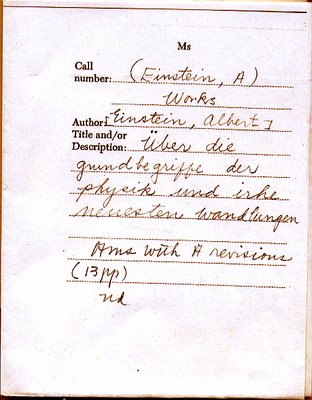 Ms
Call
number: (Einstein, A)
Works
Author [Einstein, Albert]
Title and/or
Description: Über die
grundbegriffe der
physik und ihre
neuesten wandlungen
Ams with A revisions
(13pp)
nd